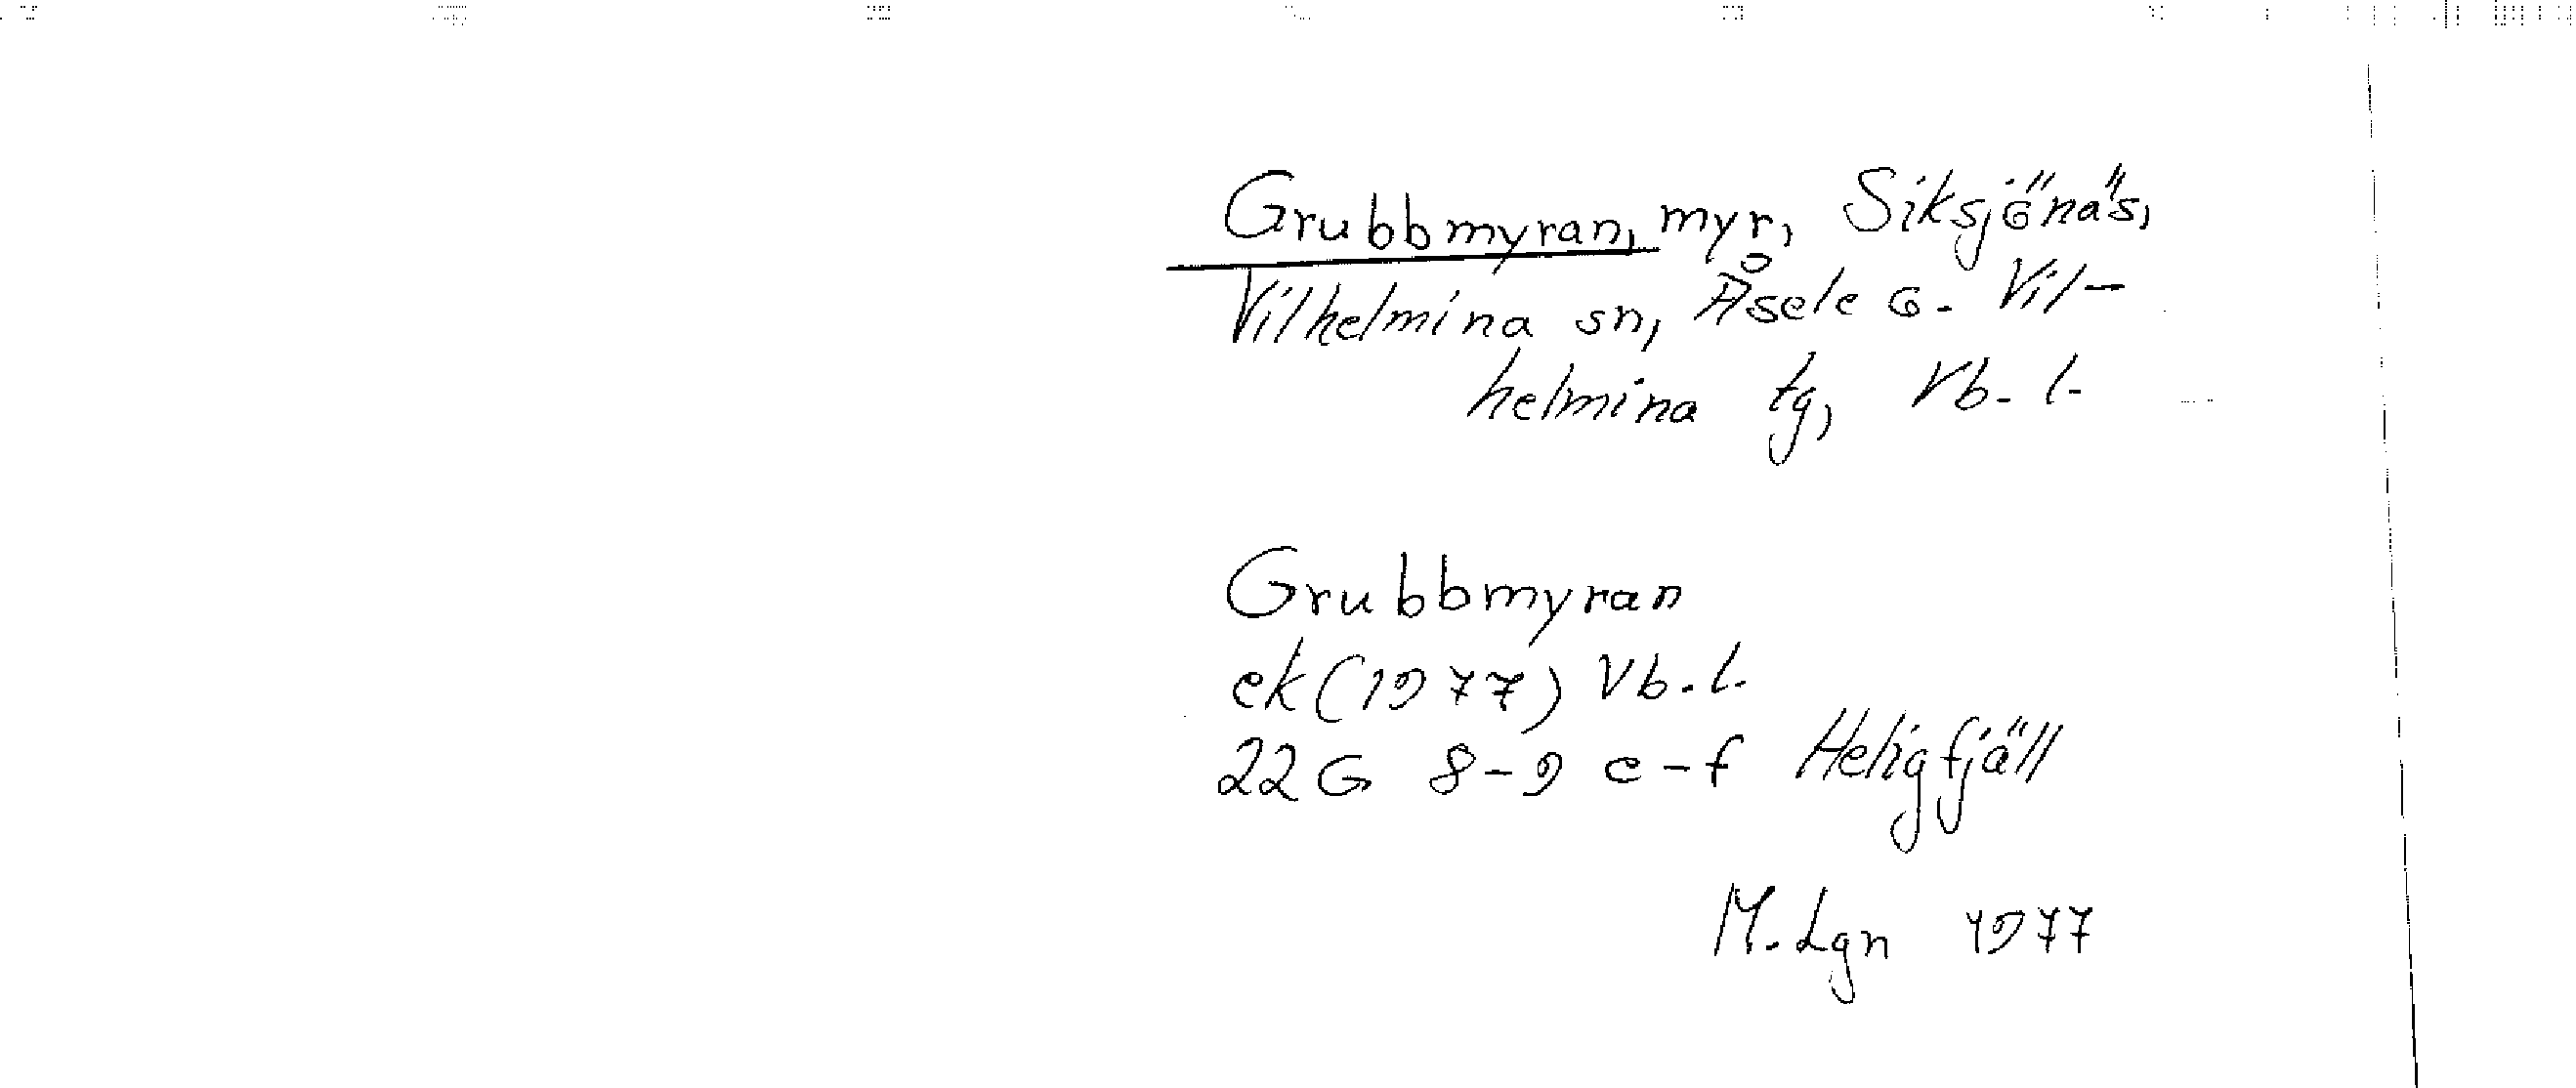 Grubbmyran, myr, Siksjönäs,
Vilhelmina sn, Åsele o. Vil-
helmina tg, Vb. l.
Grubbmyran
ek (1977) Vb. l.
22G 8-9 e-f Heligfjäll
M. Lgn 1977